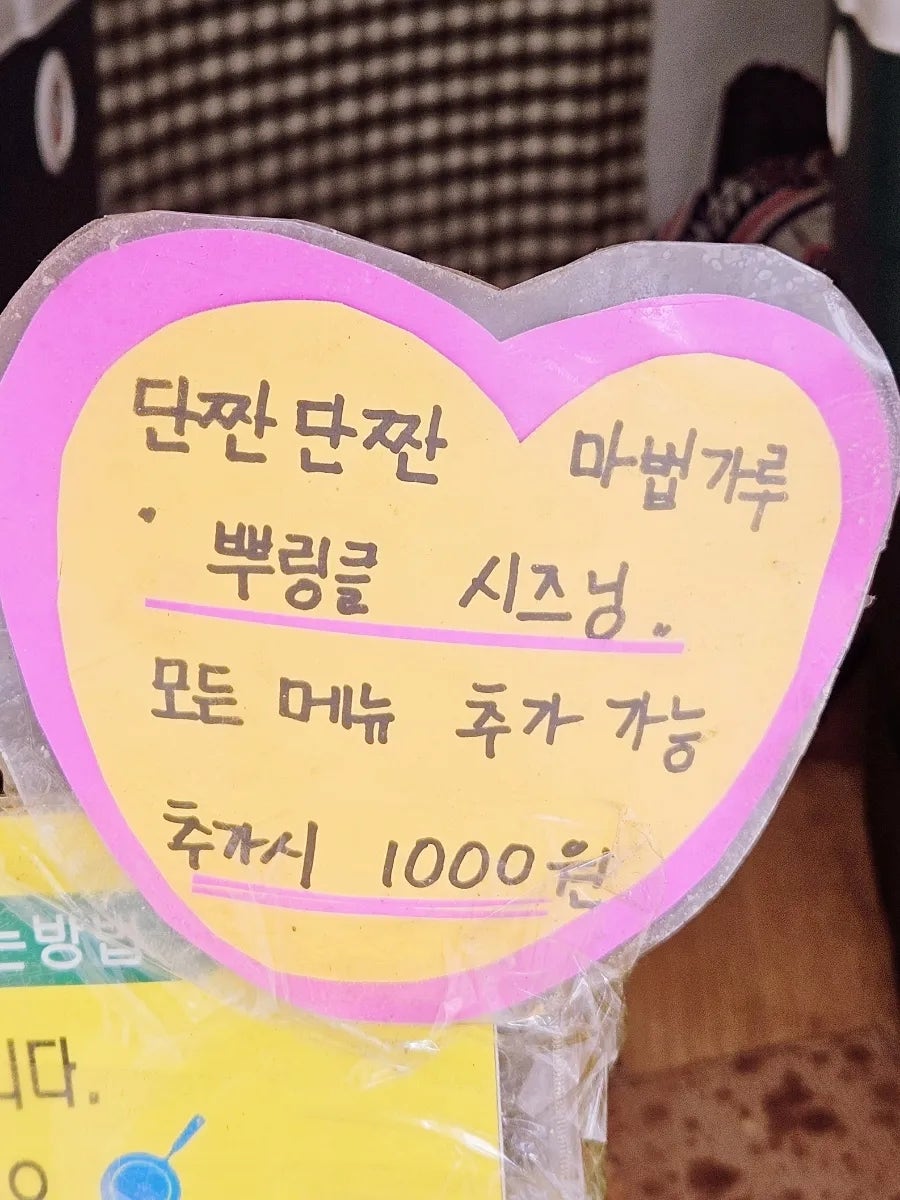 단짠단짠 마법가루
뿌링클 시즈닝
모든 메뉴 추가 가능
추가시 1000원
는방법
니다.